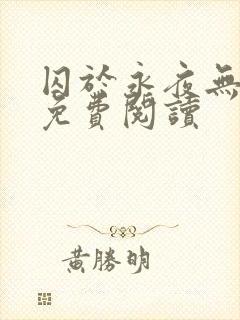 囚於永夜無
免費閱讀
黃勝明